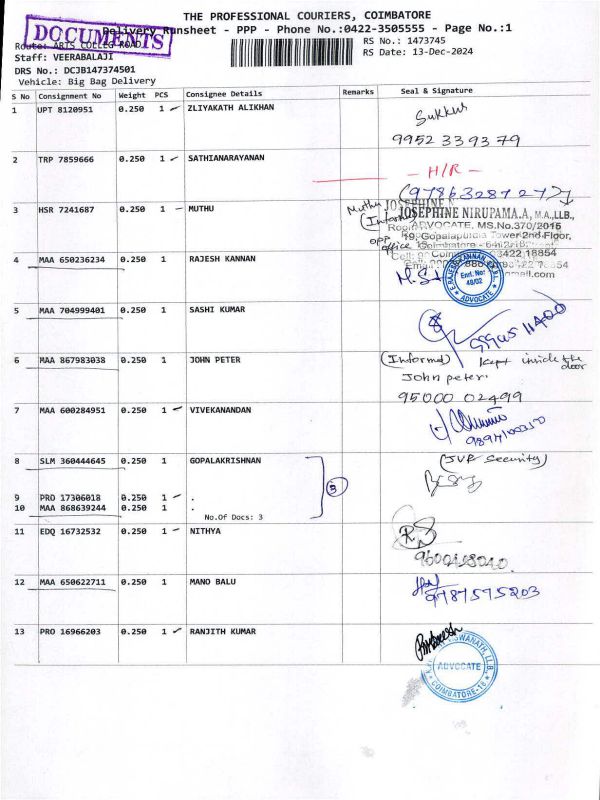 THE PROFESSIONAL COURIERS, COIMBATORE
DOCUMENTS
Delivery Runsheet - PPP - Phone No.:0422-3505555 - Page No.:1
Route: ARTS COLLEG ROAD
RS No.: 1473745
Staff: VEERABALAJI
RS Date: 13-Dec-2024
DRS No.: DCJB147374501
Vehicle: Big Bag Delivery
S No Consignment No Weight PCS Consignee Details Remarks Seal & Signature
1 UPT 8120951 0.250 1 ZLIYAKATH ALIKHAN
Sukkur
9952 339379
2 TRP 7859666 0.250 1 SATHIANARAYANAN
- H/R -
(9786328727)
3 HSR 7241687 0.250 1 MUTHU
Muthu
JOSEPHINE NIRUPAMA.A, M.A.,LL.B.,
ADVOCATE, MS.No.370/2015
Tower 2nd Floor,
opp office
4 MAA 650236234 0.250 1 RAJESH KANNAN
Enrl. No:
48/02
ADVOCATE
5 MAA 704999401 0.250 1 SASHI KUMAR
6 MAA 867983038 0.250 1 JOHN PETER
(Informed) kept inside the door
John peter.
95000 02499
7 MAA 600284951 0.250 1 VIVEKANANDAN
8 SLM 360444645 0.250 1 GOPALAKRISHNAN
(JVR Security)
3
9 PRO 17306018 0.250 1 .
10 MAA 868639244 0.250 1 .
No.Of Docs: 3
11 EDQ 16732532 0.250 1 NITHYA
12 MAA 650622711 0.250 1 MANO BALU
9787575203
13 PRO 16966203 0.250 1 RANJITH KUMAR
ADVOCATE
COIMBATORE-18